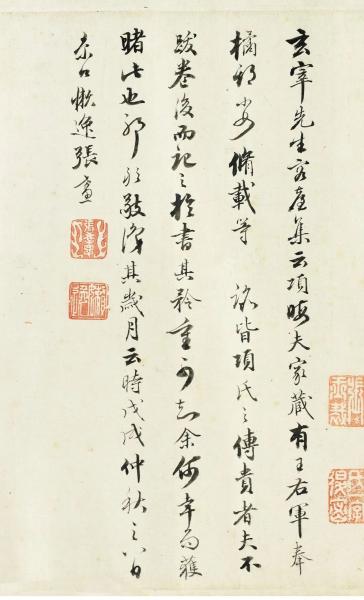 玄宰先生容臺集云項晦夫家藏有王右軍奉
橘 脩載等 皆項氏之傳貴者夫不
跋卷後而記之於書其矜重可知余何幸而獲
睹此也 敬識其歲月云時戊戌仲秋之八日
京口嬾逸張